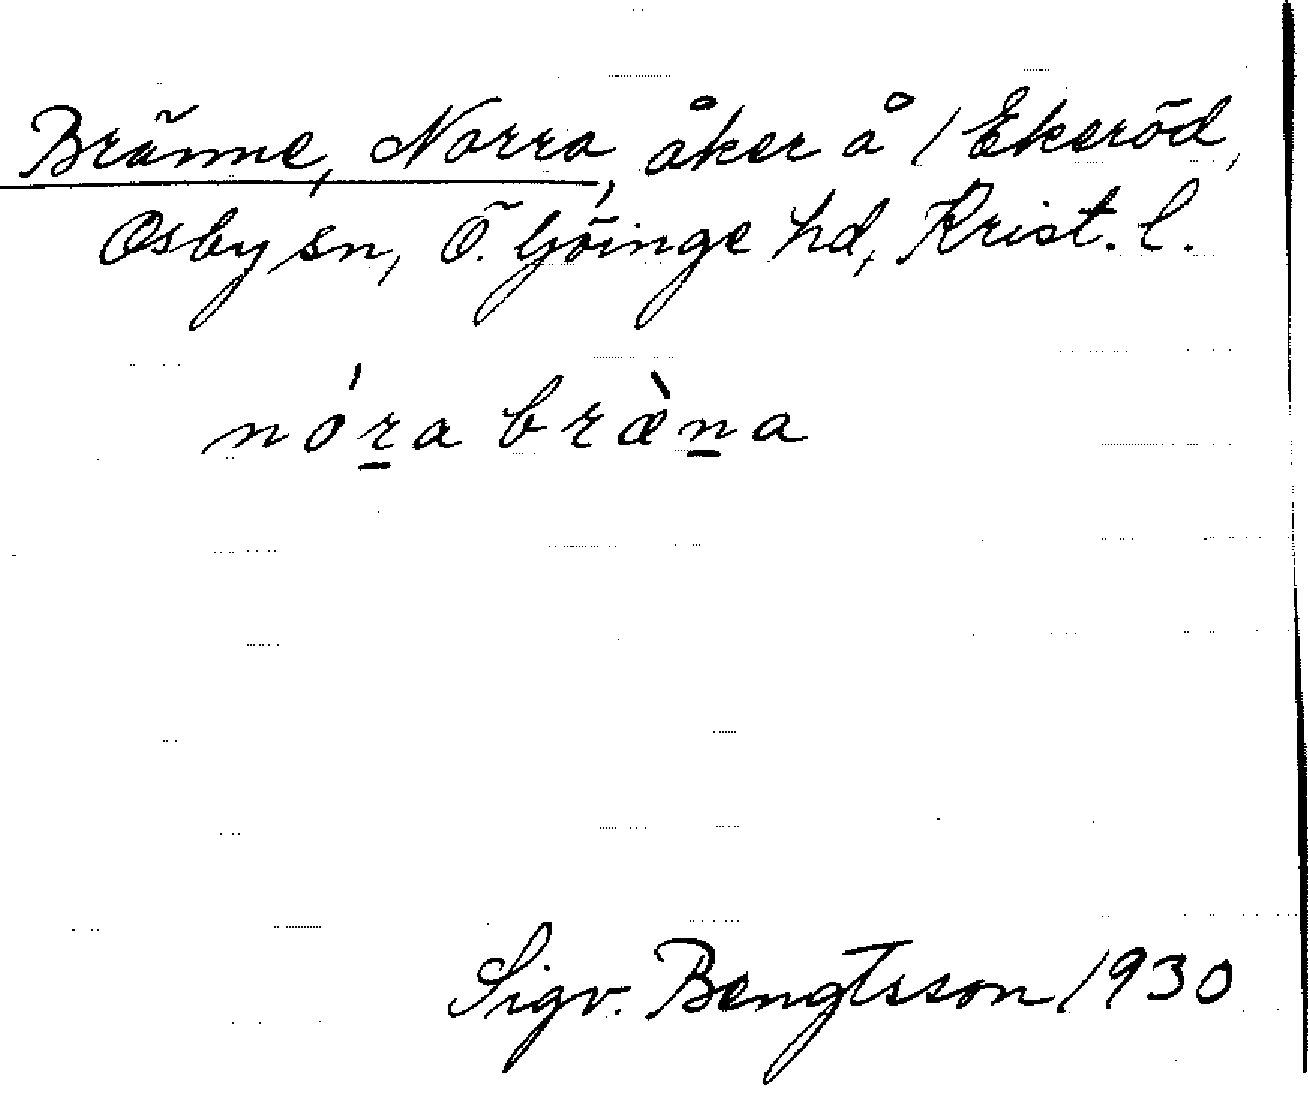 Bränne, Norra, åker å 1 Ekeröd,
Osby sn, Ö. Göinge hd, Krist. l.
nór̲a bræ̀n̲a
Sigv. Bengtsson 1930